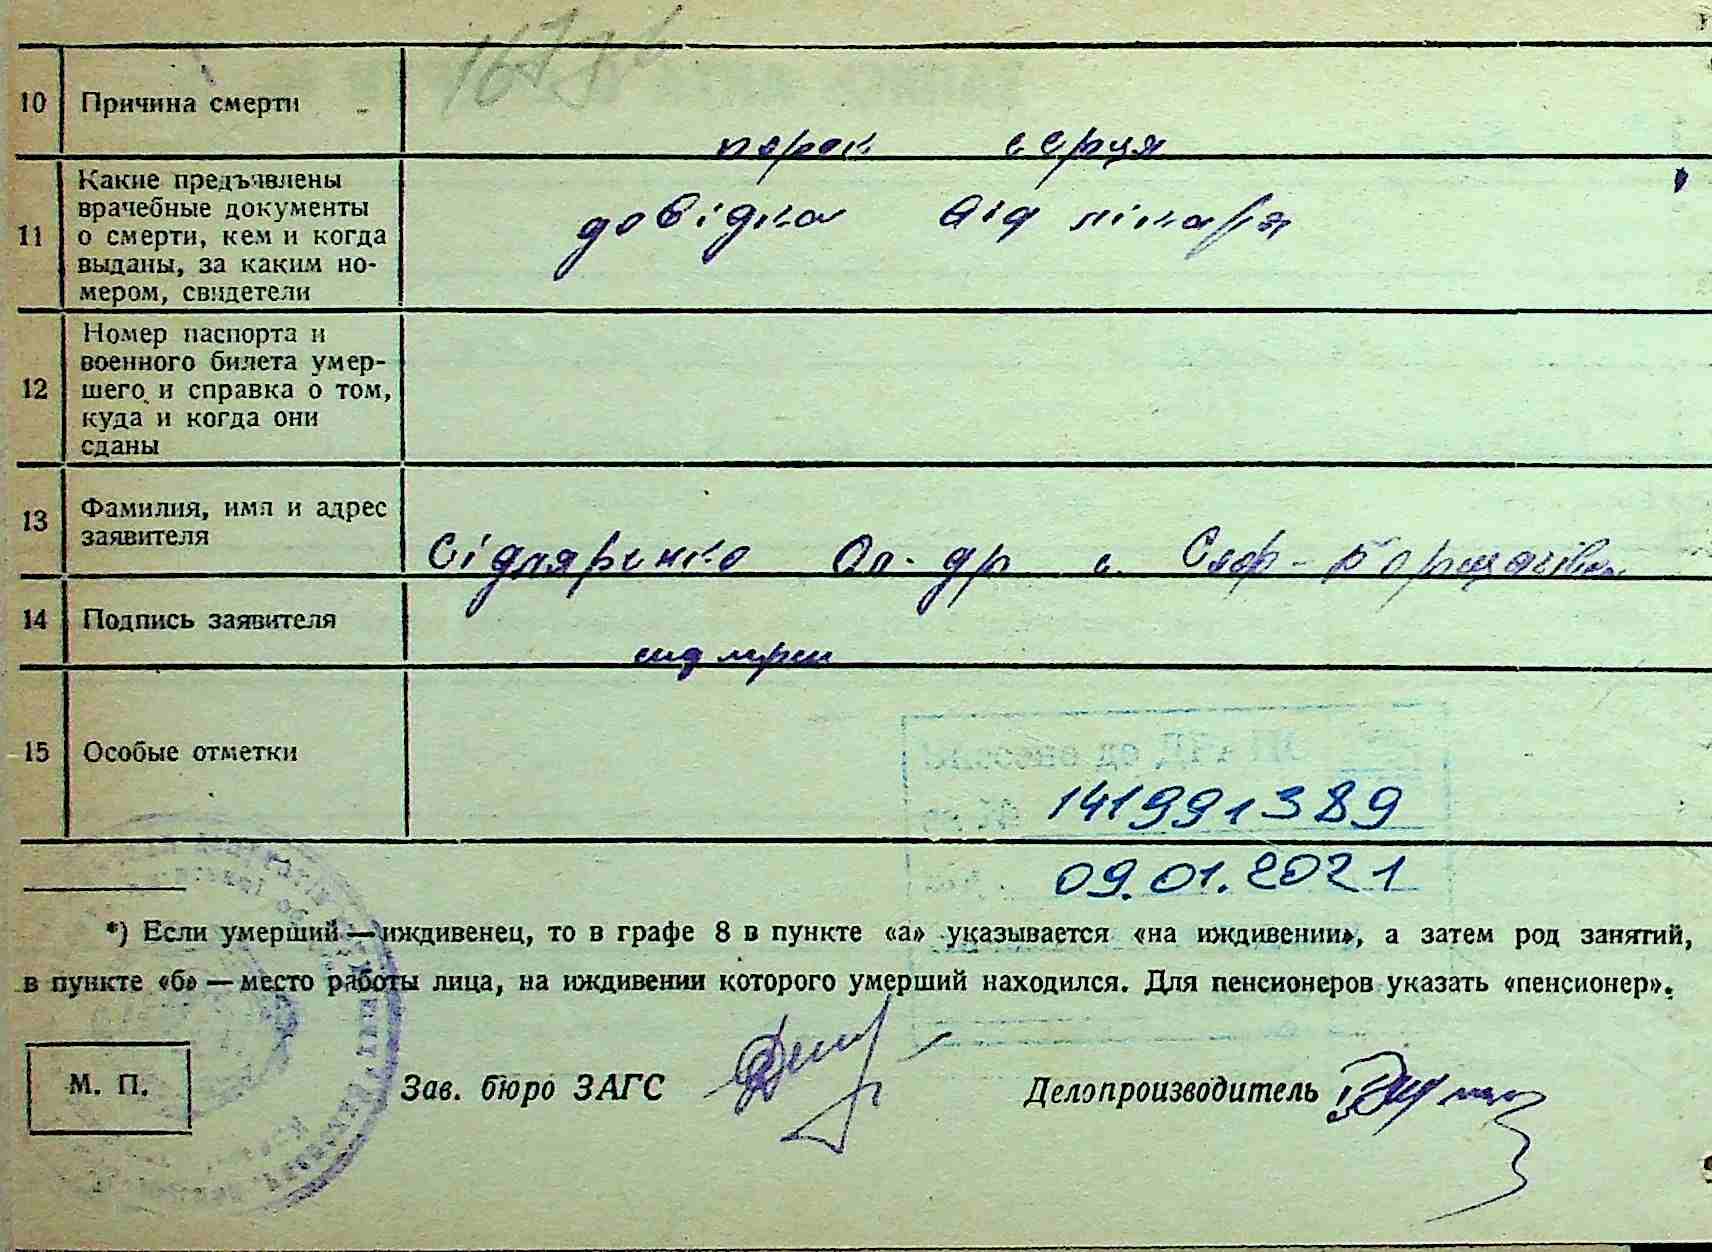 10 Причина смерти
порок серця
11 Какие предъявлены
врачебные документы
о смерти, кем и когда
выданы, за каким но-
мером, свидетели
довідка від лікаря
12 Номер паспорта и
военного билета умер-
шего и справка о том,
куда и когда они
сданы
13 Фамилия, имя и адрес
заявителя
Сідляренко Ол-др с. Соф-Борщагівка
14 Подпись заявителя
15 Особые отметки
141991389
09.01.2021
*) Если умерший — иждивенец, то в графе 8 в пункте «а» указывается «на иждивении», а затем род занятий,
в пункте «б» — место работы лица, на иждивении которого умерший находился. Для пенсионеров указать «пенсионер».
М. П.
Зав. бюро ЗАГС
Делопроизводитель